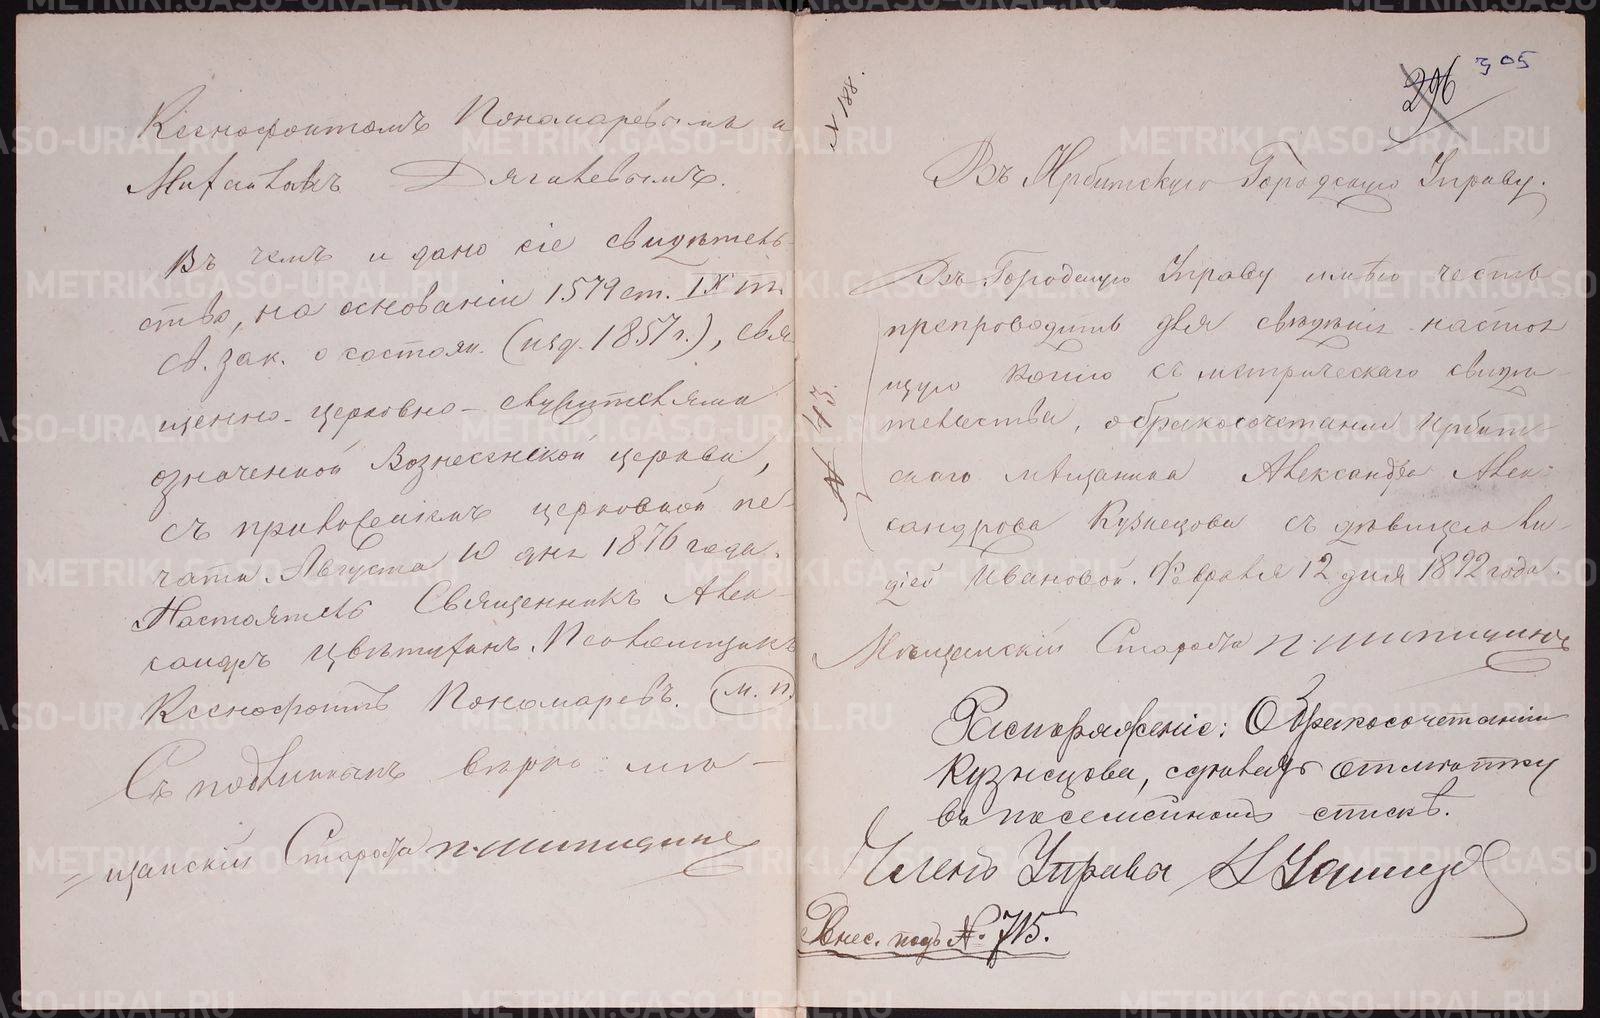 Ксенофонтомъ Пономаревымъ и
Михаиломъ Дягилевымъ.
Въ чемъ и дано сіе свидѣтель-
ство, на основаніи 1579 ст. IX т.
Св. зак. о состоян. (изд. 1857 г.), свя
щенно-церковно-служителями
означенной Вознесенской церкви,
съ приложеніемъ церковной пе-
чати. Августа 10 дня 1876 года.
Настоятель Священникъ Алек-
сандръ Цвѣтухинъ. Псаломщикъ
Ксенофонтъ Пономаревъ. (м. п.)
Съ подлиннымъ вѣрно: мѣ-
щанскій Староста П. Шипицинъ
N 188.
296
305
Въ Ирбитскую Городскую Управу.
Въ Городскую Управу имѣю честь
препроводить для свѣдѣнія настоя
щую копію съ метрическаго свидѣ
тельства, о бракосочетаніи Ирбит-
скаго мѣщанина Александра Алек-
сандрова Кузнецова съ дѣвицею Ли-
діей Ивановой. Февраля 12 дня 1892 года.
№ 43.
Мѣщанскій Староста П. Шипицинъ
Распоряженіе: О бракосочетаніи
Кузнецова, сдѣлать отмѣтку
въ посемейномъ спискѣ.
Членъ Управы
Внес. подъ №. 715.
METRIKI.GASO-URAL.RU